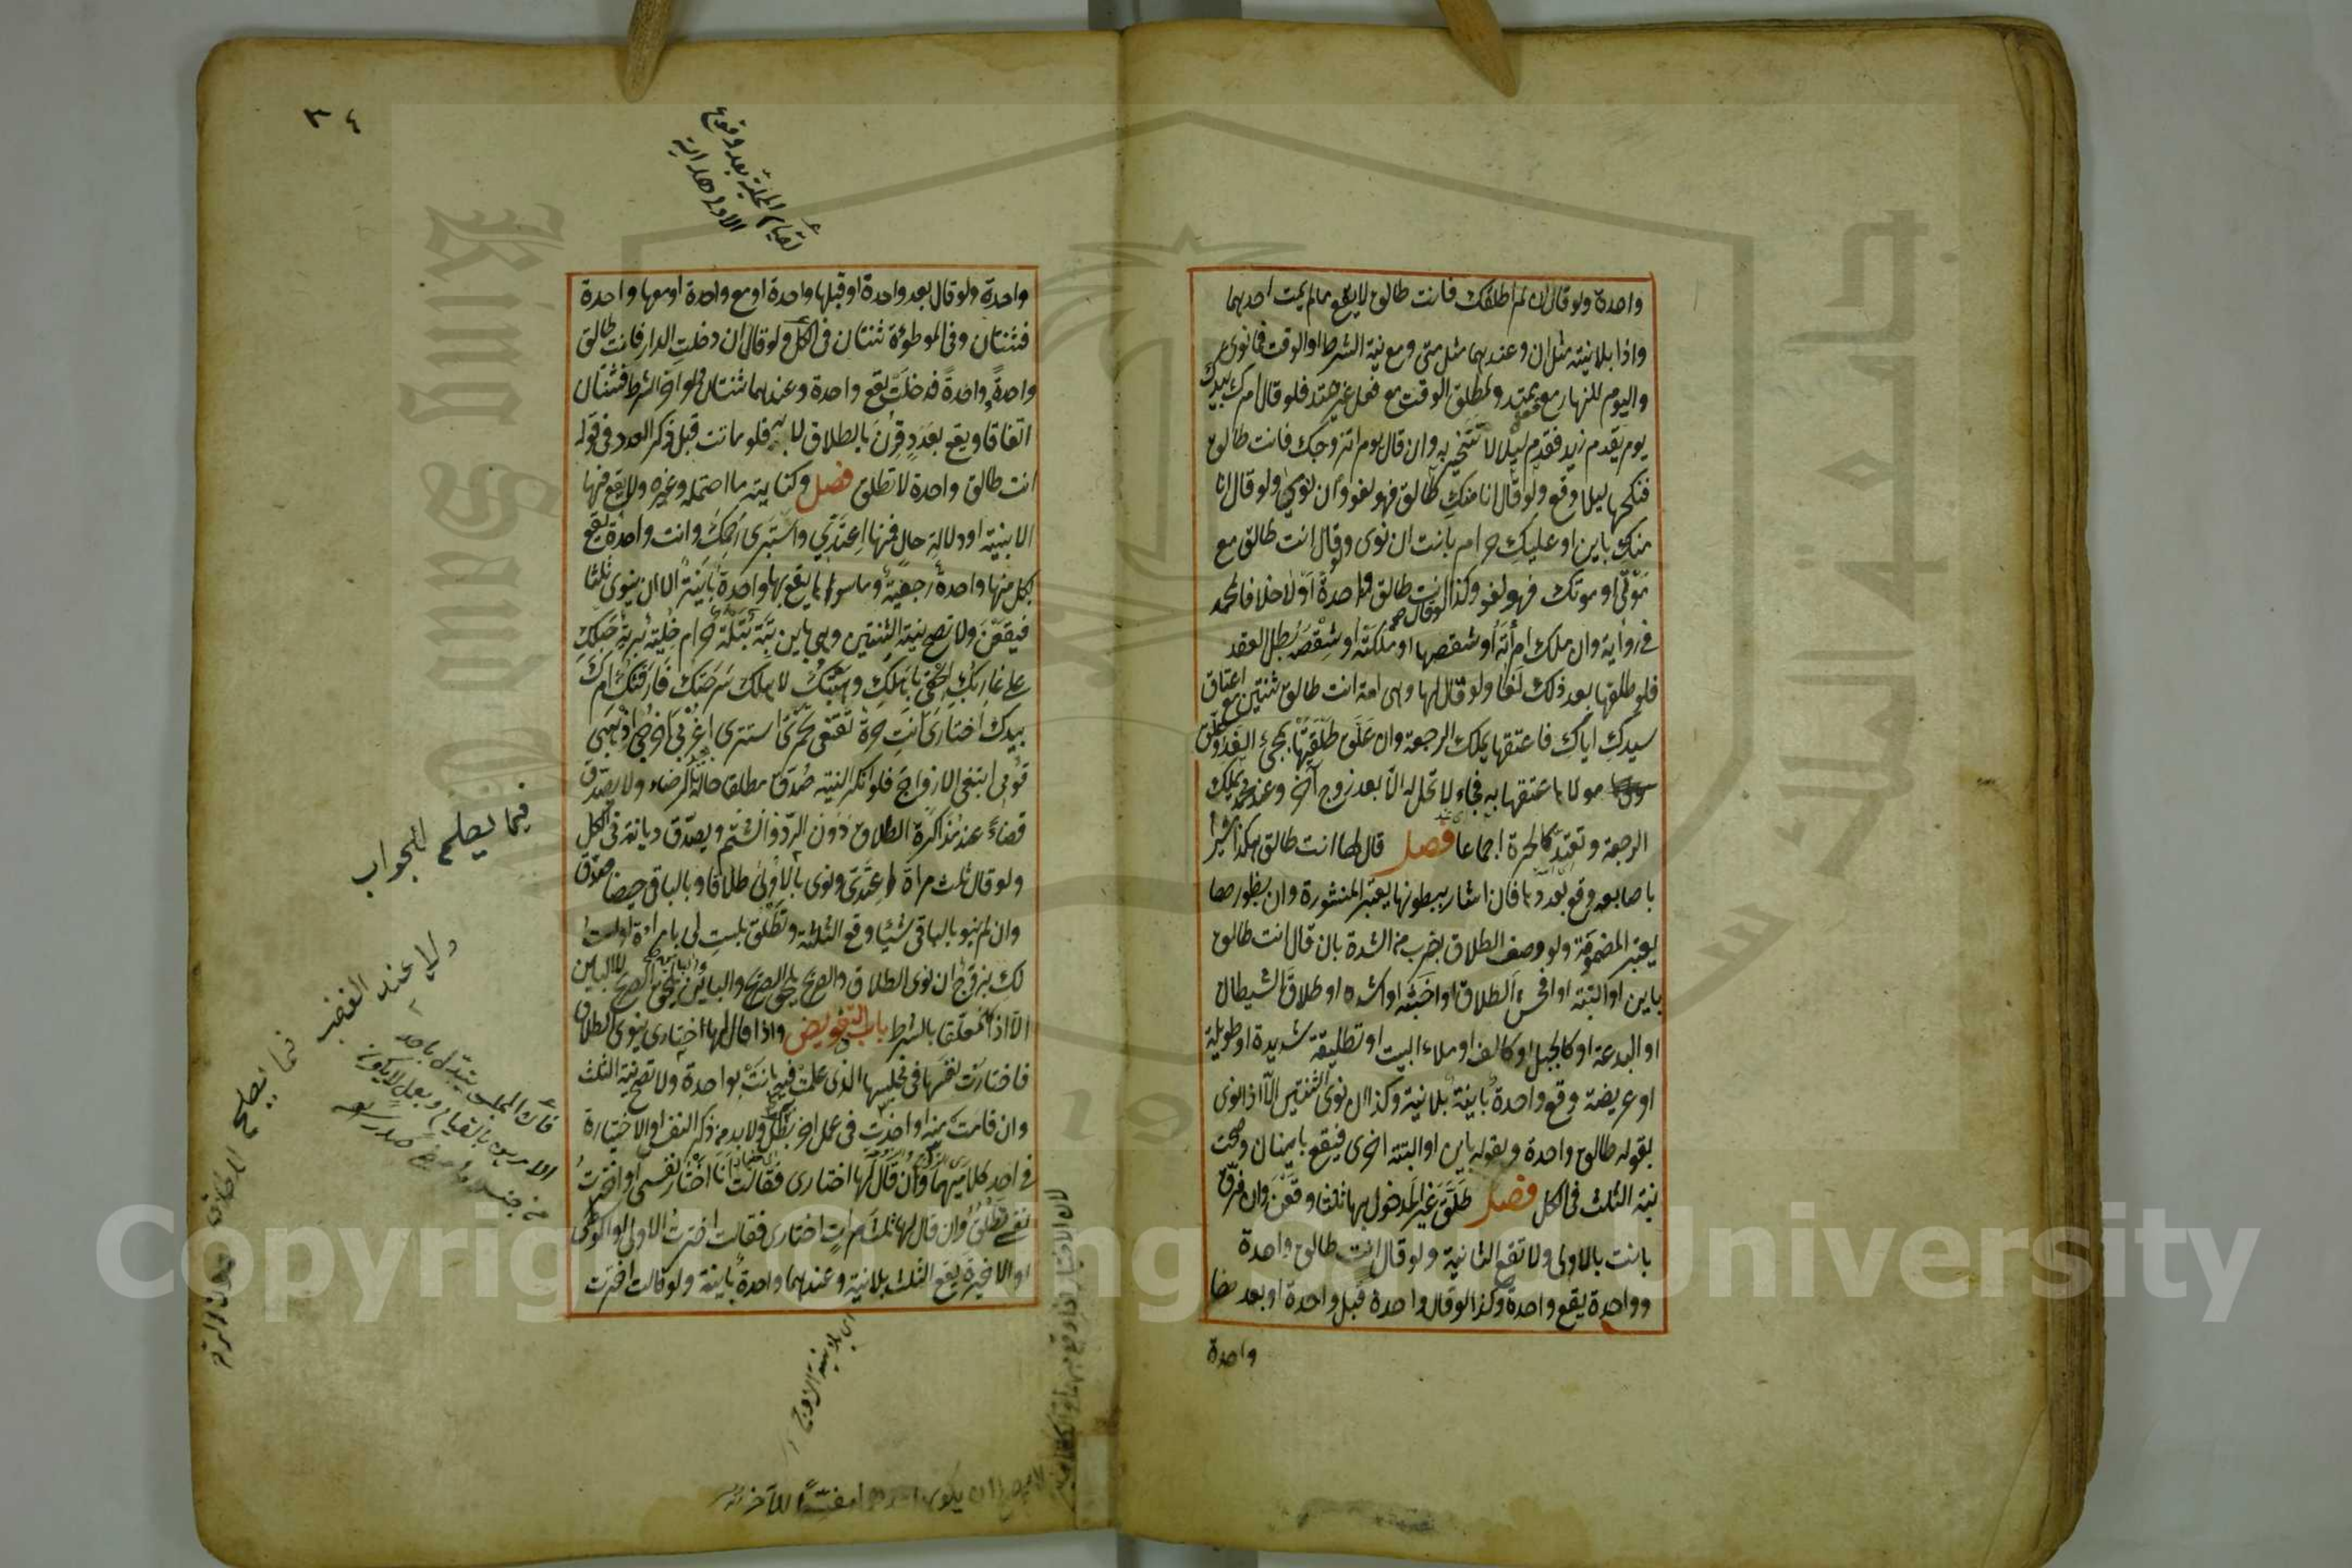 واحدة ولو قال ان لم اطلقك فانت طالق لا يقع ما لم يمت احدهما
واذا بلا نية مثل ان وعندهما مثل متى ومع نية الشرط او الوقت فما نوى
واليوم للنهار مع فعل ممتد ولمطلق الوقت مع فعل غير ممتد فلو قال امرك بيدك
يوم يقدم زيد فقدم ليلا لا تتخير به وان قال يوم اتزوجك فانت طالق
فنكحها ليلا وقع ولو قال انا منك طالق فهو لغو وان نوى ولو قال انا
منك باين او عليك حرام بانت ان نوى ولو قال انت طالق مع
موتى او موتك فهو لغو وكذا لو قال انت طالق واحدة او لا خلافا لمحمد
فى رواية وان ملك امرأته او شقصها او ملكته او شقصه بطل العقد
فلو طلقها بعد ذلك لغا ولو قال لها وهى امة انت طالق ثنتين مع اعتاق
سيدك اياك فاعتقها يملك الرجعة وان علق طلقتيها بمجئ الغد وعلق
مولاها عتقها به فجاء لا تحل له الا بعد زوج آخر وعند محمد يملك
الرجعة وتعتد كالحرة اجماعا فصل قال لها انت طالق هكذا مشيرا
باصابعه وقع بعددها فان اشار ببطونها يعتبر المنشورة وان بظهورها
يعتبر المضمومة ولو وصف الطلاق بضرب من الشدة بان قال انت طالق
باين او البتة او افحش الطلاق او اخبثه او اشده او طلاق الشيطان
او البدعة او كالجبل او كالف او ملاء البيت او تطليقة شديدة او طويلة
او عريضة وقع واحدة باينة بلا نية وكذا ان نوى الثنتين الا اذا نوى
بقوله طالق واحدة وبقوله باين او البتة اخرى فيقع باينان وصحت
نية الثلث فى الكل فصل طلق غير المدخول بها ثلثا وقعن وان فرق
بانت بالاولى ولا تقع الثانية ولو قال انت طالق واحدة
وواحدة يقع واحدة وكذا لو قال واحدة قبل واحدة او بعدها
واحدة
٣٤
لقيام المحلية بعد وقوع
الاولى هداية
واحدة ولو قال بعد واحدة او قبلها واحدة او مع واحدة او معها واحدة
فثنتان وفى الموطوءة ثنتان فى الكل ولو قال ان دخلت الدار فانت طالق
واحدة وواحدة فدخلت يقع واحدة وعندهما ثنتان ولو اخر الشرط فثنتان
اتفاقا ويقع بعدد قرن بالطلاق لا به فلو ماتت قبل ذكر العدد فى قوله
انت طالق واحدة لا تطلق فصل وكنايته ما احتمله وغيره ولا يقع بها
الا بنية او دلالة حال فمنها اعتدى واستبرى رحمك وانت واحدة يقع
بكل منها واحدة رجعية وما سواها يقع بها واحدة باينة الا ان ينوى ثلثا
فيقعن ولا تصح نية الثنتين وهى باين بتة بتلة حرام خلية برية حبلك
على غاربك الحقى باهلك وهبتك لاهلك سرحتك فارقتك امرك
بيدك اختارى انت حرة تقنعى تخمرى استترى اغربى اخرجى اذهبى
قومى ابتغى الازواج فلو انكر النية صدق مطلقا حالة الرضاء ولا يصدق
قضاء عند مذاكرة الطلاق دون الرد والشتم ويصدق ديانة فى الكل
ولو قال ثلث مرات اعتدى ونوى بالاولى طلاقا وبالباقى حيضا صدق
وان لم ينو بالباقى شيئا وقع الثلثة وتطلق بلست لى بامراءة او لست
لك بزوج ان نوى الطلاق والصريح يلحق الصريح والباين والباين يلحق الصريح لا الباين
الا اذا كان معلقا بالشرط باب التفويض واذا قال لها اختارى ينوى الطلاق
فاختارت نفسها فى مجلسها الذى علمت فيه بانت بواحدة ولا تصح نية الثلث
وان قامت منه او اخذت فى عمل اخر بطل ولا بد من ذكر النفس او الاختيارة
فى احد كلاميهما وان قال لها اختارى فقالت انا اختار نفسى او اخترت
نفسى تطلق وان قال لها ثلث مرات اختارى فقالت اخترت الاولى او الوسطى
او الاخيرة يقع الثلث بلا نية وعندهما واحدة باينة ولو قالت اخترت
فيما يصلح للجواب
عند الغضب
اى بلا نية الازوج
Copyright © King Saud University
King Saud University